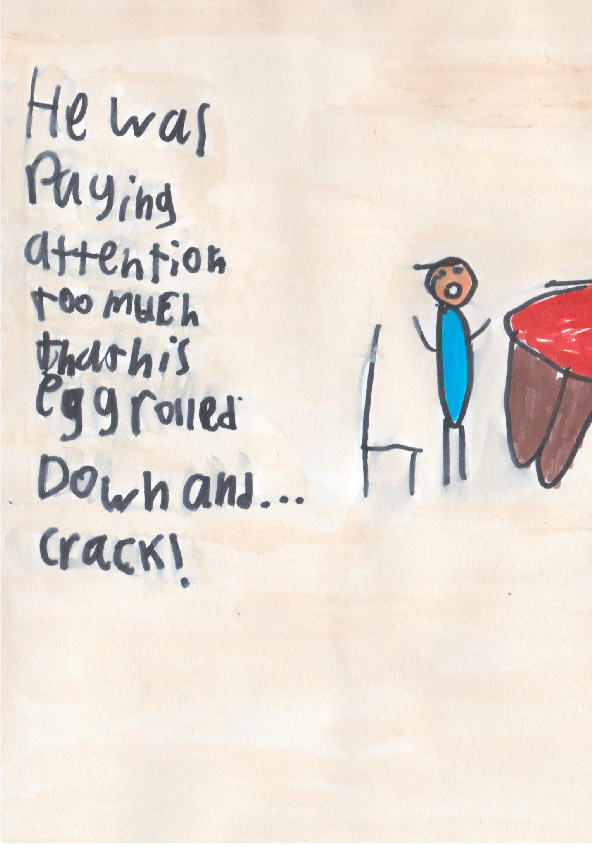 He was
Paying
attention
too much
that his
egg rolled
Down and...
crack!